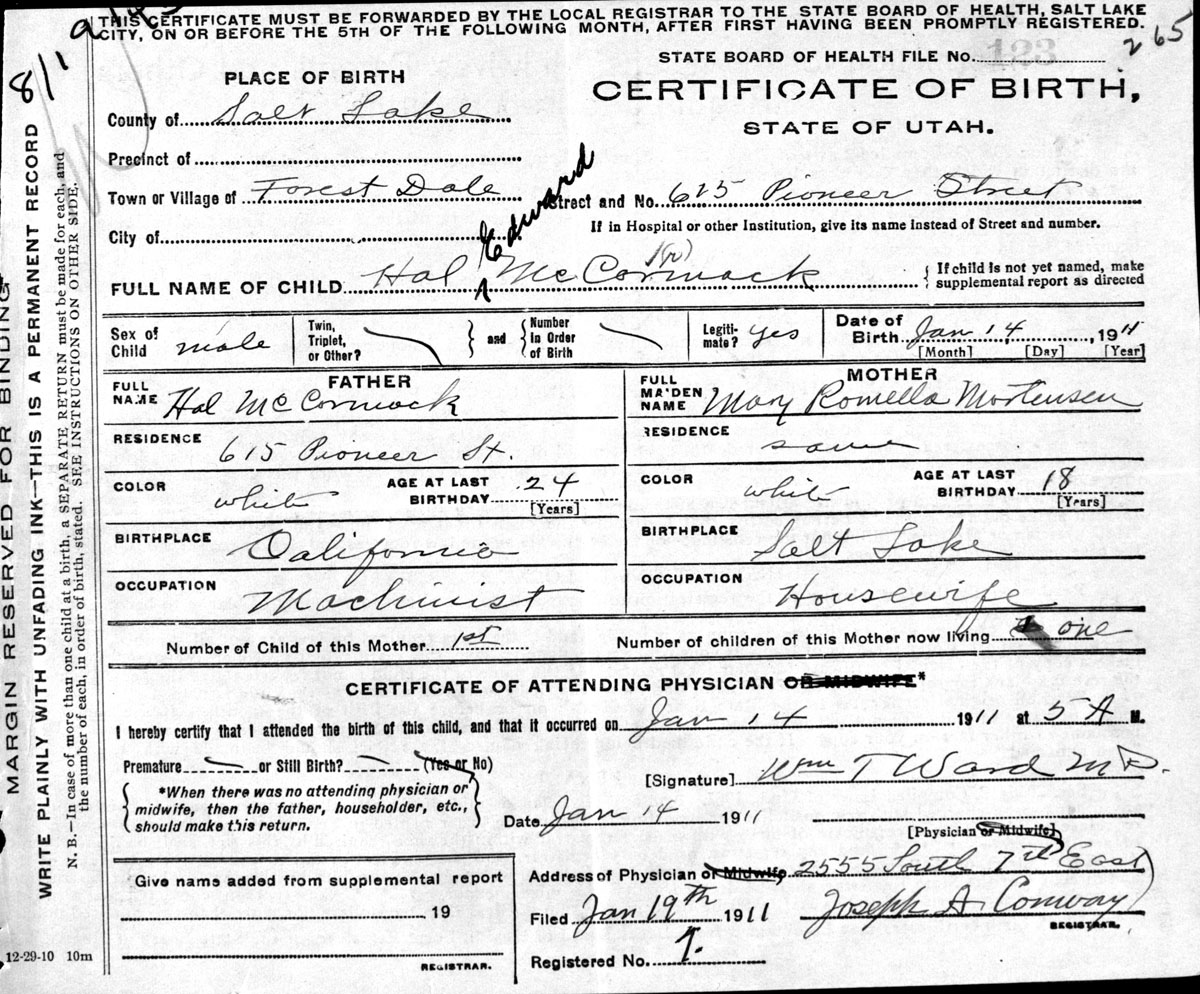 THIS CERTIFICATE MUST BE FORWARDED BY THE LOCAL REGISTRAR TO THE STATE BOARD OF HEALTH, SALT LAKE
CITY, ON OR BEFORE THE 5TH OF THE FOLLOWING MONTH, AFTER FIRST HAVING BEEN PROMPTLY REGISTERED.
265
8/1
STATE BOARD OF HEALTH FILE No. 123
PLACE OF BIRTH
CERTIFICATE OF BIRTH,
STATE OF UTAH.
County of Salt Lake
Precinct of
Town or Village of Forest Dale Street and No. 615 Pioneer Street
City of
If in Hospital or other Institution, give its name instead of Street and number.
Edward
FULL NAME OF CHILD Hal McCormack
If child is not yet named, make
supplemental report as directed
Sex of Child male Twin, Triplet, or Other? and Number in Order of Birth Legiti-mate? yes Date of Birth Jan 14, 1911
[Month] [Day] [Year]
FATHER
FULL NAME Hal McCormack
RESIDENCE 615 Pioneer St.
COLOR white AGE AT LAST BIRTHDAY 24 [Years]
BIRTHPLACE California
OCCUPATION Machinist
MOTHER
FULL MAIDEN NAME Mary Romella Mortensen
RESIDENCE same
COLOR white AGE AT LAST BIRTHDAY 18 [Years]
BIRTHPLACE Salt Lake
OCCUPATION Housewife
Number of Child of this Mother 1st Number of children of this Mother now living one
CERTIFICATE OF ATTENDING PHYSICIAN OR MIDWIFE*
I hereby certify that I attended the birth of this child, and that it occurred on Jan 14 1911 at 5 A M.
Premature or Still Birth? (Yes or No)
[Signature] Wm T Ward MD.
*When there was no attending physician or
midwife, then the father, householder, etc.,
should make this return.
Date Jan 14 1911
[Physician or Midwife]
Give name added from supplemental report
19
REGISTRAR.
Address of Physician or Midwife 2555 South 7th East
Filed Jan 19th 1911 Joseph A. Conway
REGISTRAR.
Registered No. 7.
12-29-10 10m
MARGIN RESERVED FOR BINDING
WRITE PLAINLY WITH UNFADING INK—THIS IS A PERMANENT RECORD
N. B.—In case of more than one child at a birth, a SEPARATE RETURN must be made for each, and
the number of each, in order of birth, stated. SEE INSTRUCTIONS ON OTHER SIDE.